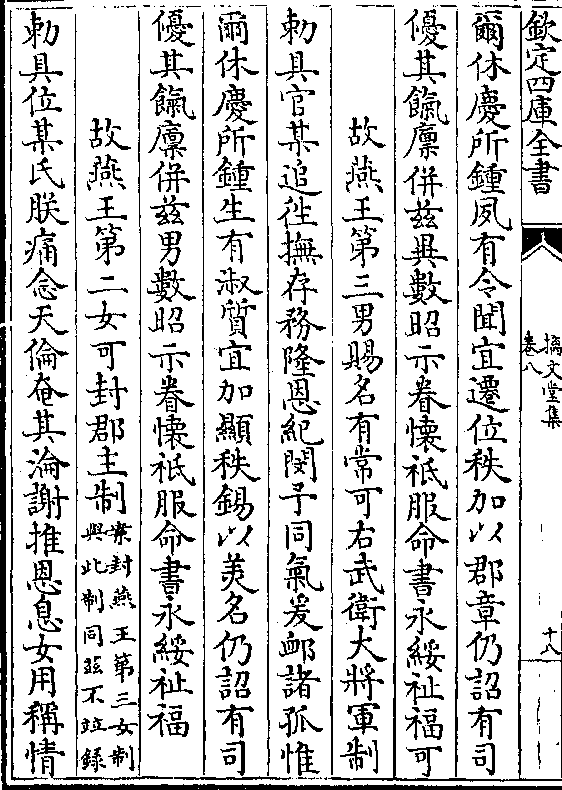 欽定四庫全書
摛文堂集
卷八
十八
爾休慶所鍾夙有令聞宜遷位秩加以郡章仍詔有司
優其餼廩併兹異數昭示眷懐祗服命書永綏祉福可
故燕王第三男賜名有常可右武衛大將軍制
勅具官某追徃撫存務隆恩紀閔予同氣爰䘏諸孤惟
爾休慶所鍾生有淑質宜加顯秩錫以羙名仍詔有司
優其餼廩併兹男數昭示眷懐祗服命書永綏祉福
故燕王第二女可封郡主制案封燕王第三女制
與此制同兹不竝録
勅具位某氏朕痛念天倫奄其淪謝推恩息女用稱情